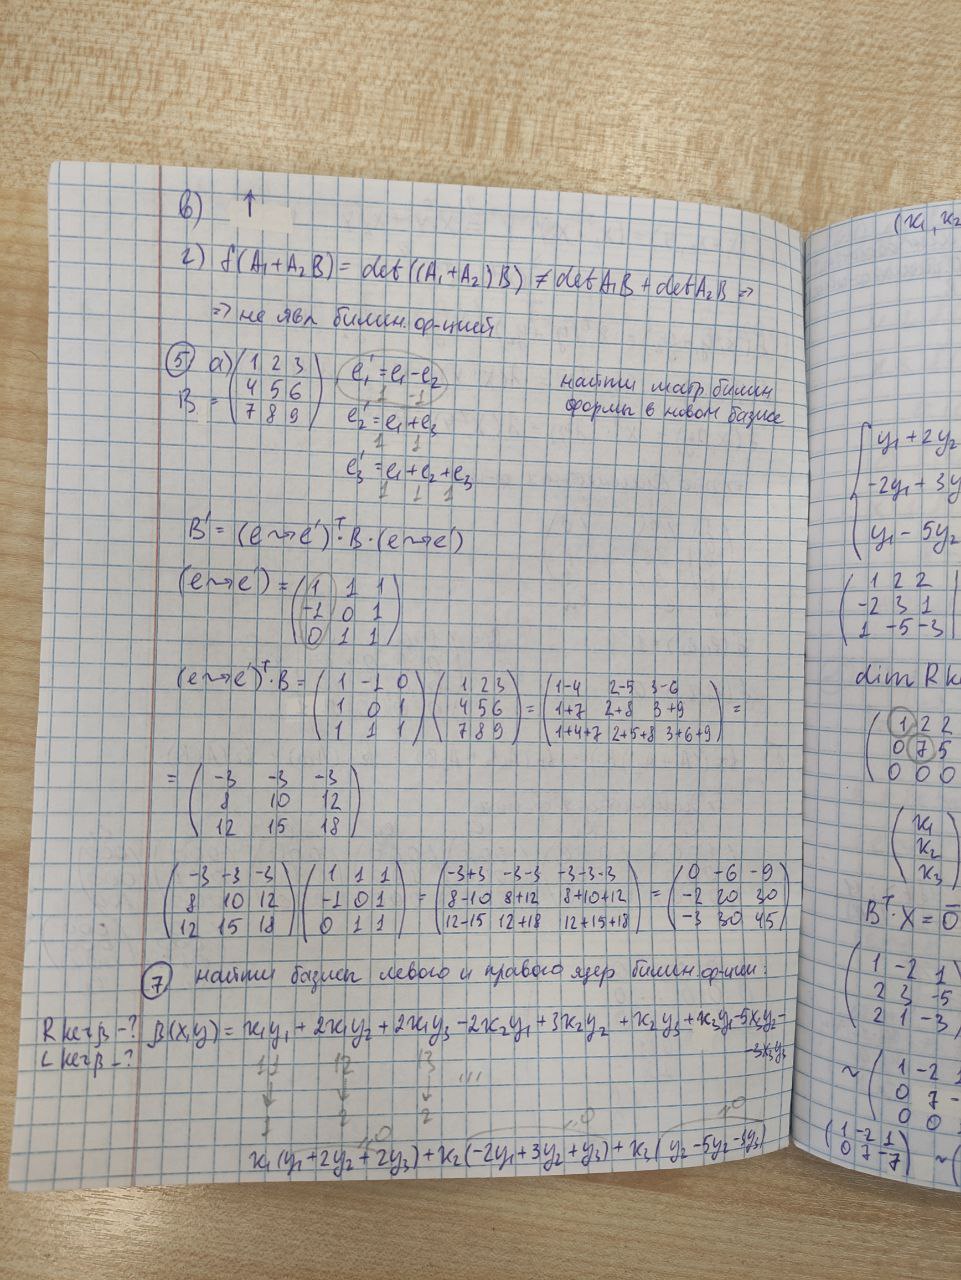 в) ↑
г) f(A₁+A₂B) = det((A₁+A₂)B) ≠ detA₁B + detA₂B ⇒
⇒ не явл билин. ф-цией
⑤ а) B = (1 2 3
4 5 6
7 8 9)
e₁' = e₁ - e₂
1 -1
e₂' = e₁ + e₃
1 1
e₃' = e₁ + e₂ + e₃
1 1 1
найти матр билин
формы в новом базисе
B' = (e⇝e')ᵀ · B · (e⇝e')
(e⇝e') = (1 1 1
-1 0 1
0 1 1)
(e⇝e')ᵀ · B = (1 -1 0
1 0 1
1 1 1) (1 2 3
4 5 6
7 8 9) = (1-4 2-5 3-6
1+7 2+8 3+9
1+4+7 2+5+8 3+6+9) =
= (-3 -3 -3
8 10 12
12 15 18)
(-3 -3 -3
8 10 12
12 15 18) (1 1 1
-1 0 1
0 1 1) = (-3+3 -3-3 -3-3-3
8-10 8+12 8+10+12
12-15 12+18 12+15+18) = (0 -6 -9
-2 20 30
-3 30 45)
⑦ найти базисы левого и правого ядер билин. ф-ции:
R kerβ - ? β(x,y) = x₁y₁ + 2x₁y₂ + 2x₁y₃ - 2x₂y₁ + 3x₂y₂ + x₂y₃ + x₃y₁ - 5x₃y₂ -
L kerβ - ? -3x₃y₃
11 12 13 ...
↓ ↓ ↓
1 2 2
=0 =0 =0
x₁(y₁+2y₂+2y₃) + x₂(-2y₁+3y₂+y₃) + x₃(y₂-5y₂-3y₃)
(x₁, x₂
{ y₁ + 2y₂
-2y₁ + 3y
y₁ - 5y₂
(1 2 2
-2 3 1
1 -5 -3
dim R k
(1 2 2
0 7 5
0 0 0
(x₁
x₂
x₃)
Bᵀ · X = 0
(1 -2 1
2 3 -5
2 1 -3)
~ (1 -2 1
0 7 -
0 0
(1 -2 1
0 7 -7) ~ (